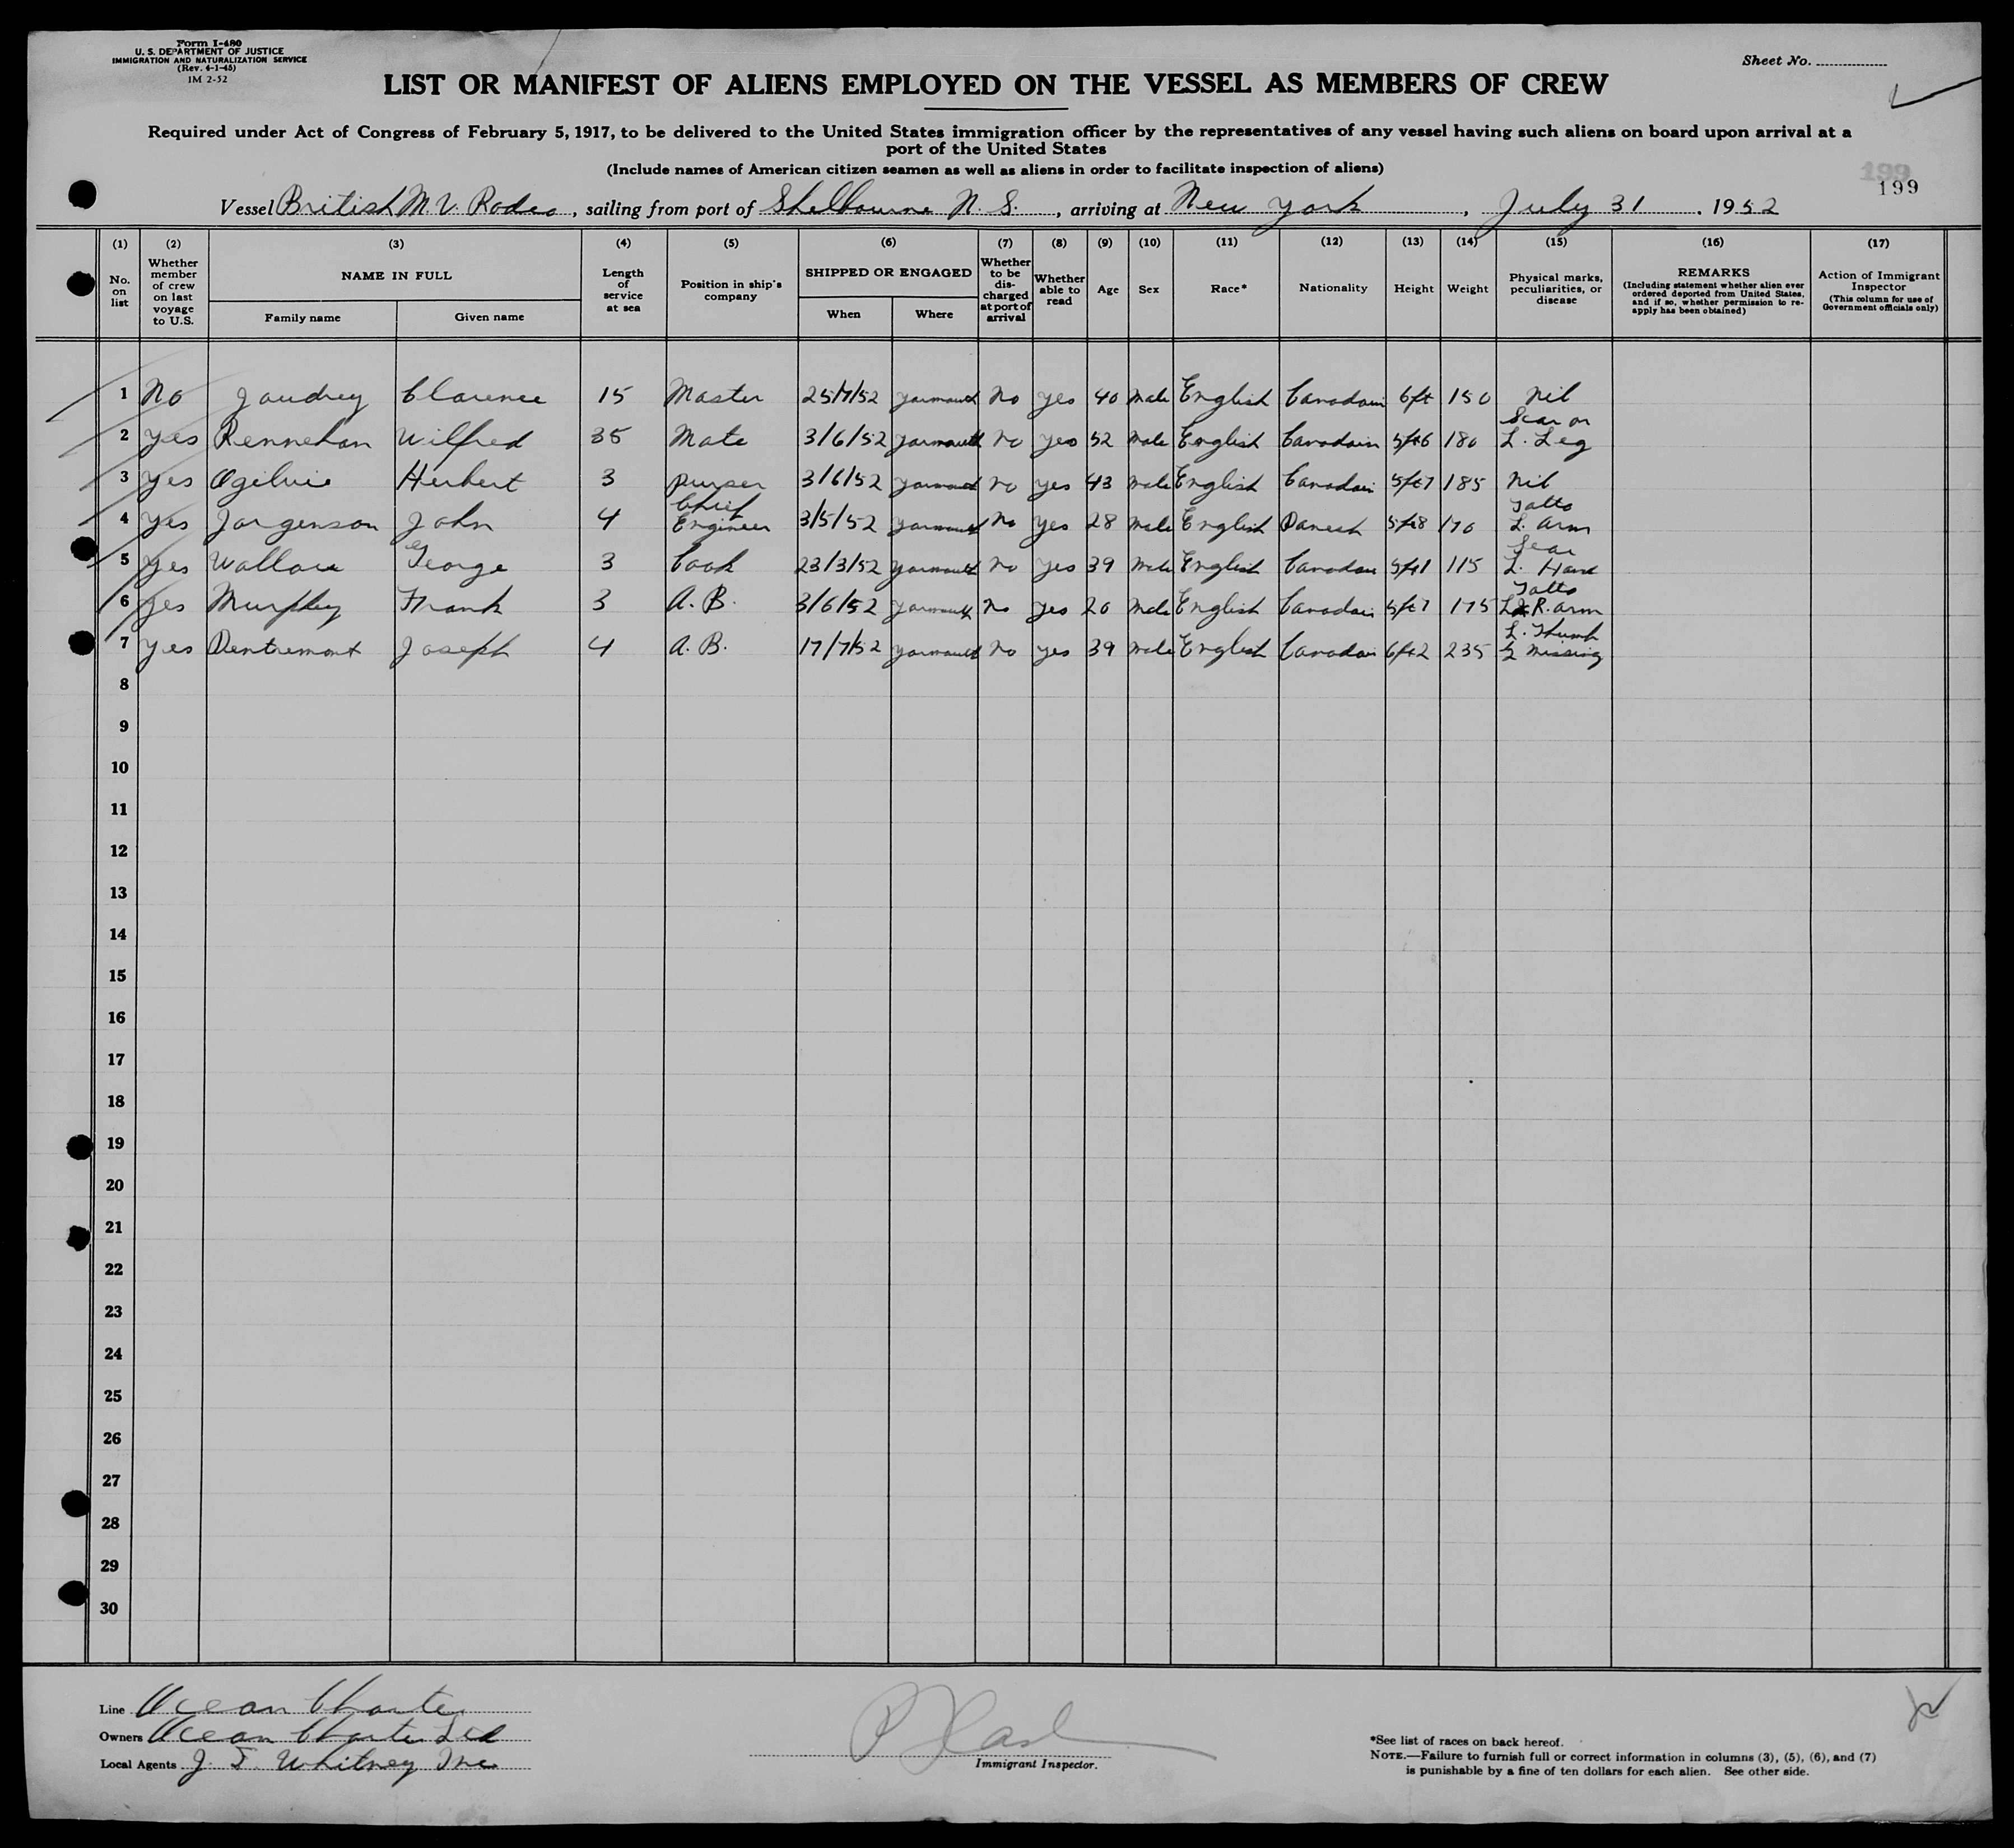 Form I-480
U. S. DEPARTMENT OF JUSTICE
IMMIGRATION AND NATURALIZATION SERVICE
(Rev. 4-1-45)
1M 2-52
Sheet No.
LIST OR MANIFEST OF ALIENS EMPLOYED ON THE VESSEL AS MEMBERS OF CREW
Required under Act of Congress of February 5, 1917, to be delivered to the United States immigration officer by the representatives of any vessel having such aliens on board upon arrival at a
port of the United States
(Include names of American citizen seamen as well as aliens in order to facilitate inspection of aliens)
199
199
Vessel British M.V. Rodeo, sailing from port of Shelbourne N. S., arriving at New York, July 31, 1952
(1) (2) (3) (4) (5) (6) (7) (8) (9) (10) (11) (12) (13) (14) (15) (16) (17)
No. on list
Whether member of crew on last voyage to U.S.
NAME IN FULL
Family name
Given name
Length of service at sea
Position in ship's company
SHIPPED OR ENGAGED
When
Where
Whether to be discharged at port of arrival
Whether able to read
Age
Sex
Race*
Nationality
Height
Weight
Physical marks, peculiarities, or disease
REMARKS
(Including statement whether alien ever ordered deported from United States, and if so, whether permission to reapply has been obtained)
Action of Immigrant Inspector
(This column for use of Government officials only)
1 No Gaudrey Clarence 15 Master 25/7/52 Yarmouth No Yes 40 Male English Canadain 6ft 150 Nil
2 Yes Rennehan Wilfred 35 Mate 3/6/52 Yarmouth No Yes 52 Male English Canadain 5ft6 180 Scar on L. Leg
3 Yes Ogilvie Herbert 3 Purser 3/6/52 Yarmouth No Yes 43 Male English Canadain 5ft7 185 Nil
4 Yes Jorgenson John 4 Chief Engineer 3/5/52 Yarmouth No Yes 28 Male English Danesh 5ft8 170 Tatto L. Arm
5 Yes Wallace George 3 Cook 23/3/52 Yarmouth No Yes 39 Male English Canadain 5ft1 115 Scar L. Hand
6 Yes Murphey Frank 3 A. B. 3/6/52 Yarmouth No Yes 20 Male English Canadain 5ft7 175 Tatto L & R. Arm
7 Yes Dentremont Joseph 4 A. B. 17/7/52 Yarmouth No Yes 39 Male English Canadain 6ft2 235 L. Thumb ½ Missing
8
9
10
11
12
13
14
15
16
17
18
19
20
21
22
23
24
25
26
27
28
29
30
Line Ocean Charter
Owners Ocean Charter Ltd
Local Agents J. F. Whitney Inc
Immigrant Inspector.
*See list of races on back hereof.
NOTE.—Failure to furnish full or correct information in columns (3), (5), (6), and (7)
is punishable by a fine of ten dollars for each alien. See other side.